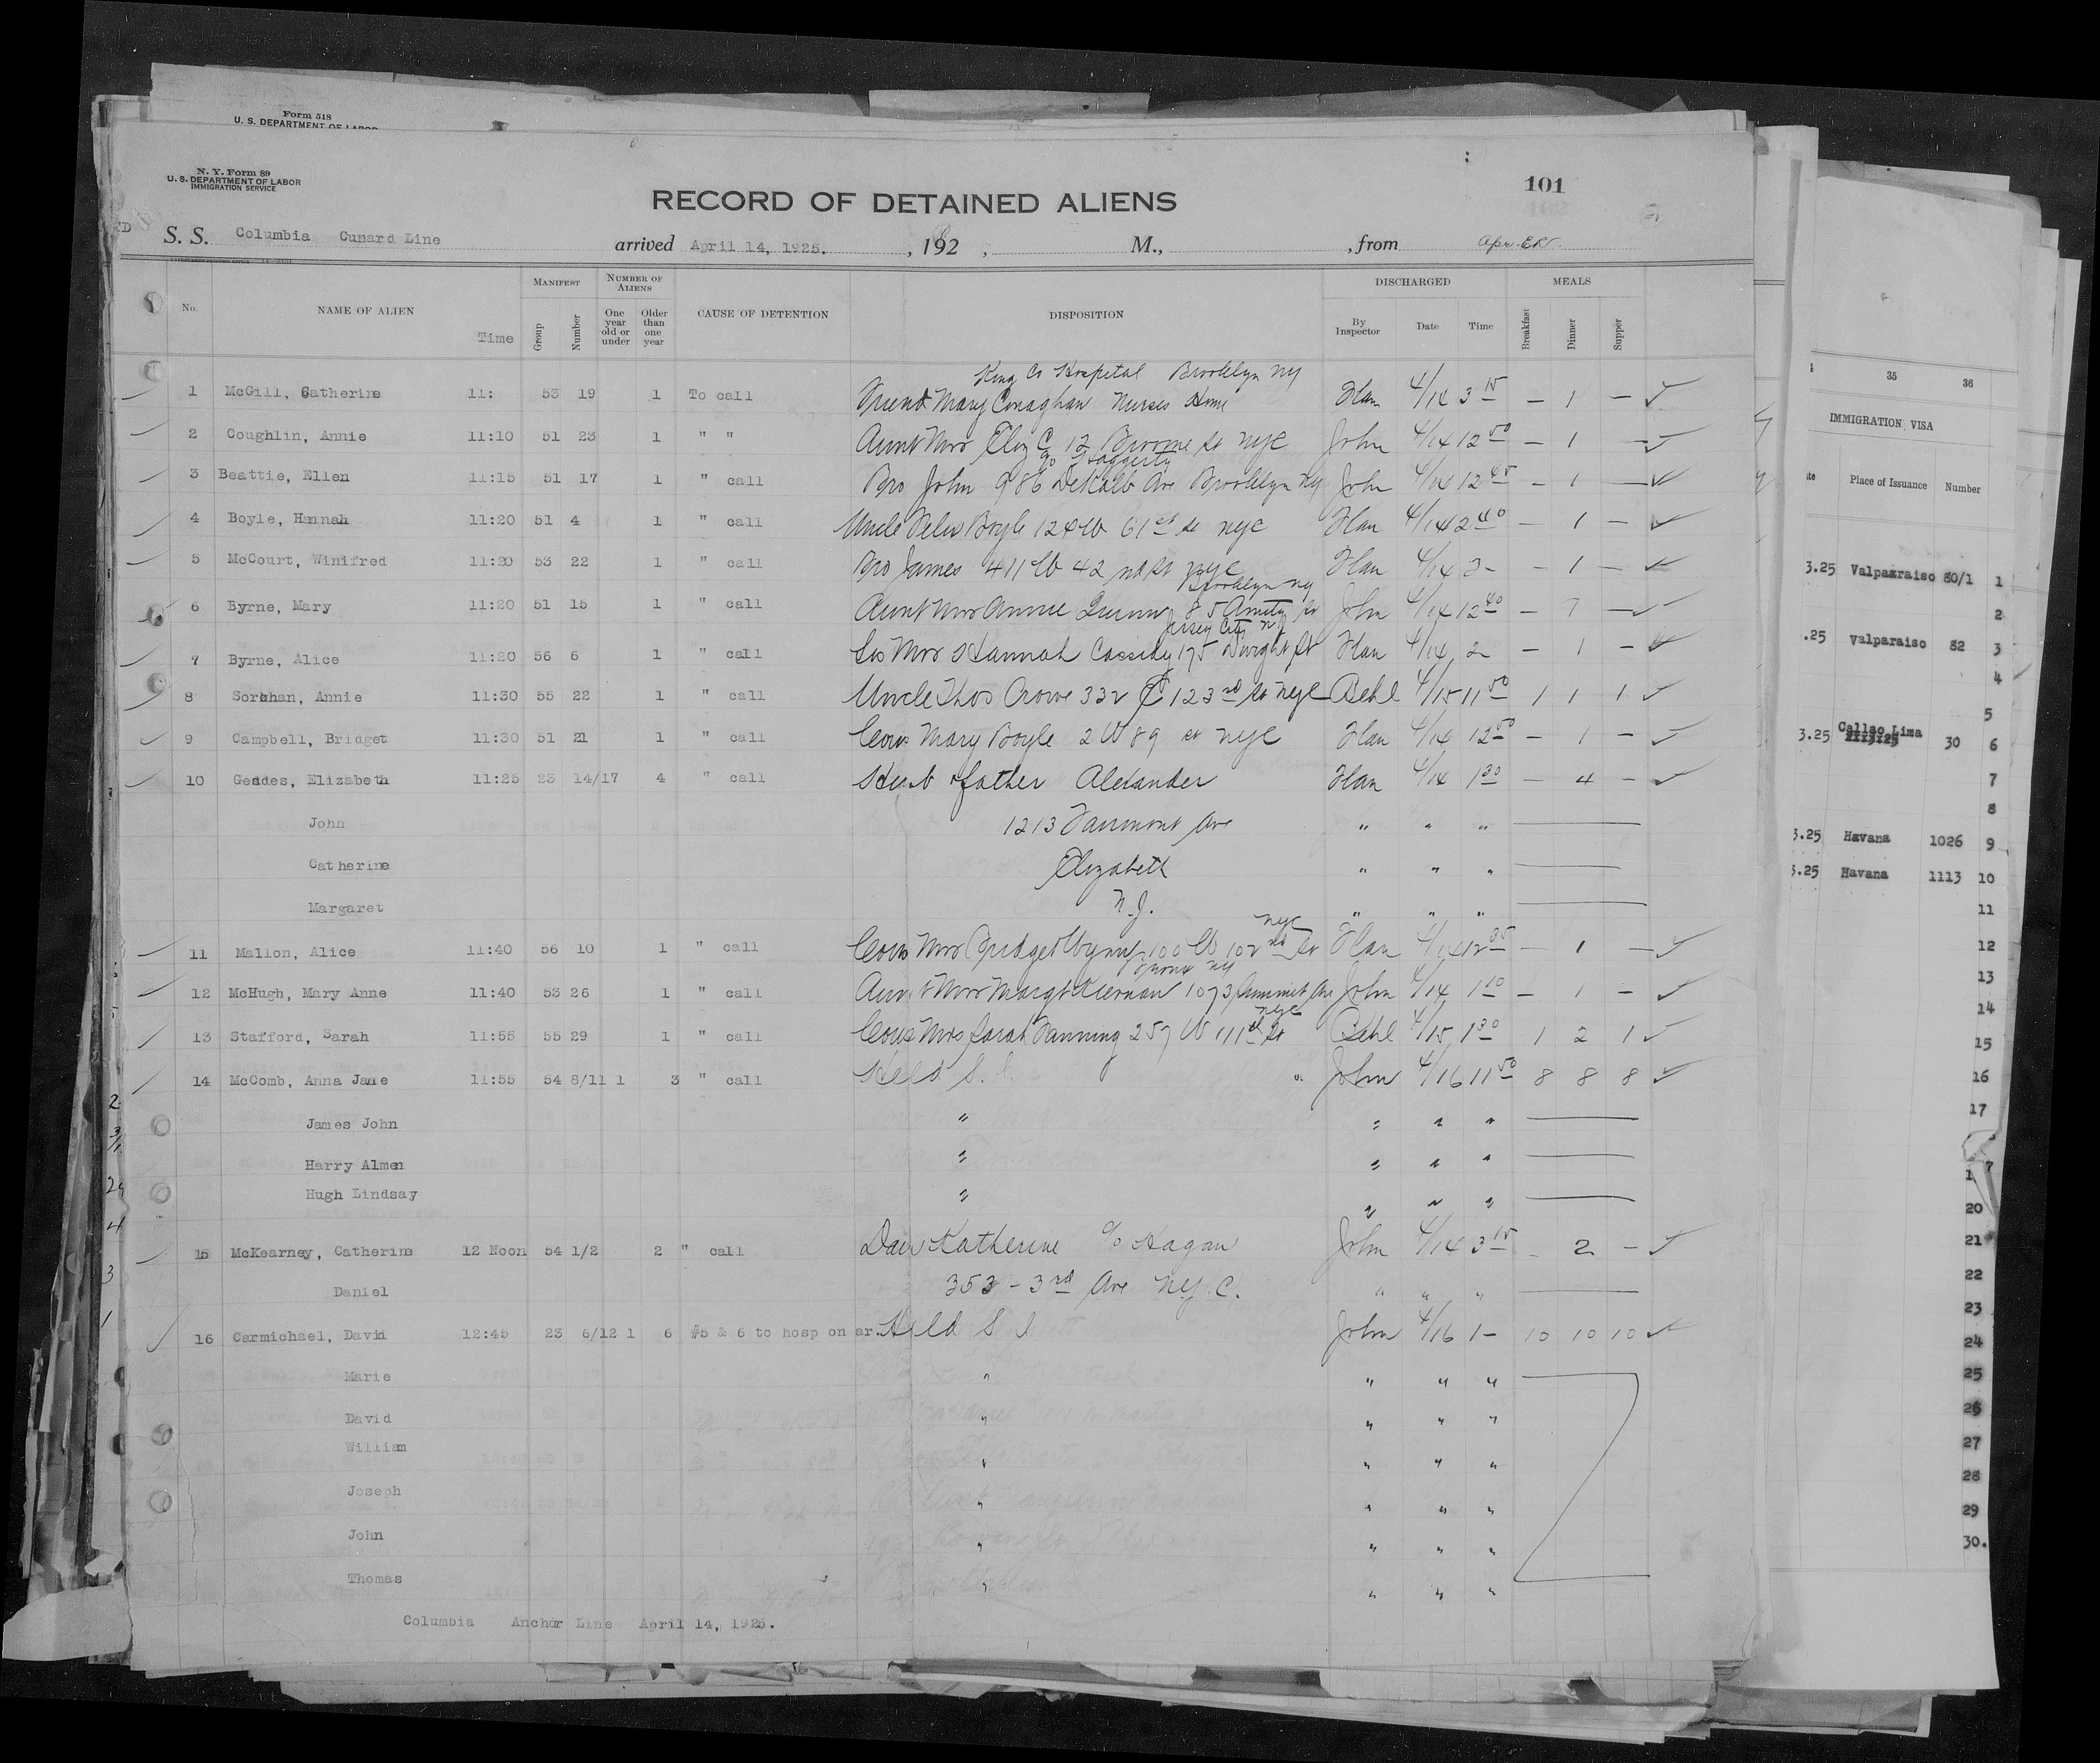 Form 518
U. S. DEPARTMENT OF LABOR
N. Y. Form 89
U. S. DEPARTMENT OF LABOR
IMMIGRATION SERVICE
101
RECORD OF DETAINED ALIENS
S. S. Columbia Cunard Line arrived April 14, 1925. , 192 , M., , from
No. NAME OF ALIEN Time MANIFEST Group Number NUMBER OF ALIENS One year old or under Older than one year CAUSE OF DETENTION DISPOSITION DISCHARGED By Inspector Date Time MEALS Breakfast Dinner Supper
King Co Hospital Brooklyn NY
1 McGill, Catherine 11: 53 19 1 To call Friend Mary Conaghan Nurses Home Flan 4/14 3 15 — 1 —
2 Coughlin, Annie 11:10 51 23 1 " " Aunt Mrs Eliz C 12 Broome St NYC John 4/14 12 50 — 1 —
c/o Haggerty
3 Beattie, Ellen 11:15 51 17 1 " call Bro John 986 DeKalb Ave Brooklyn NY John 4/14 12 45 — 1 —
4 Boyle, Hannah 11:20 51 4 1 " call Uncle Boyle 124 W 61st St NYC Flan 4/14 2 40 — 1 —
5 McCourt, Winifred 11:20 53 22 1 " call Bro James 411 W 42 nd St NYC Flan 4/14 — 1 —
Brooklyn NY
6 Byrne, Mary 11:20 51 15 1 " call Aunt Mrs Annie Quinn 85 Amity St John 4/14 12 40 — 1 —
Jersey City NJ
7 Byrne, Alice 11:20 56 6 1 " call Sis Mrs Hannah Cassidy 175 Dwight St Flan 4/14 2 — 1 —
8 Annie 11:30 55 22 1 " call Uncle Thos Crowe 332 E 123rd St NYC Behl 4/15 11 50 1 1 1
9 Campbell, Bridget 11:30 51 21 1 " call Cous Mary Boyle 2 W 89 St NYC Flan 4/14 12 50 — 1 —
10 Geddes, Elizabeth 11:25 23 14/17 4 " call Husb & father Alexander Flan 4/14 1 30 — 4 —
John 1213 Fairmont Ave " " "
Catherine Elizabeth " " "
Margaret N.J. " " "
NYC
11 Mallon, Alice 11:40 56 10 1 " call Cous Mrs Bridget Wynne 100 W 102 nd St Flan 4/14 12 35 — 1 —
Bronx NY
12 McHugh, Mary Anne 11:40 53 26 1 " call Aunt Mrs Margt Kiernan 1073 Summit Ave John 4/14 1 10 — 1 —
NYC
13 Stafford, Sarah 11:55 55 29 1 " call Cous Mrs Sarah Fanning 257 W 111th St Behl 4/15 1 30 1 2 1
14 McComb, Anna Jane 11:55 54 8/11 1 3 " call Held S. I. John 4/16 11 50 8 8 8
James John " " " "
Harry Almen " " " "
Hugh Lindsay " " " "
15 McKearney, Catherine 12 Noon 54 1/2 2 " call Dau Katherine c/o Hagan John 4/14 3 15 - 2 -
Daniel 353 - 3rd Ave N.Y.C. " " "
16 Carmichael, David 12:45 23 6/12 1 6 #5 & 6 to hosp on ar. Held S I John 4/16 1— 10 10 10
Marie " " " "
David " " " "
William " " " "
Joseph " " " "
John " " " "
Thomas " " " "
Columbia Anchor Line April 14, 1925.
35 36
IMMIGRATION VISA
Place of Issuance Number
3.25 Valparaiso 80/1 1
2
.25 Valparaiso 82 3
4
5
Callao Lima
3.25 30 6
7
8
3.25 Havana 1026 9
3.25 Havana 1113 10
11
12
13
14
15
16
17
20
21
22
23
24
25
26
27
28
29
30.